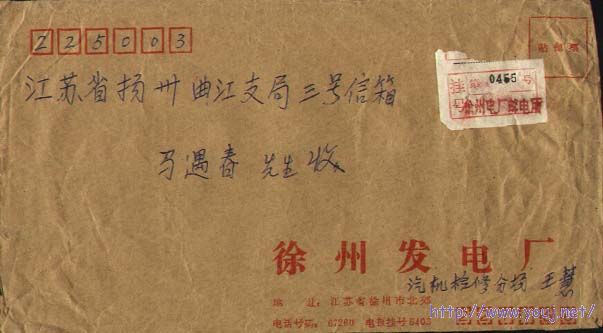 225003
贴邮票
0456 号
徐州电厂邮电所
江苏省扬卅曲江支局三号信箱
马遇春 先生 收
徐州发电厂
汽机检修分场 王慧
地 址:江苏省徐州市北郊
电话号码:67260 电报挂号640